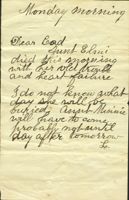 Monday morning
Dear Dad
Aunt Elmi
died this morning
with her old
and heart failure
I do not know what
day she will be
buried. Aunt
will have to come
probably not until
day after tomorrow